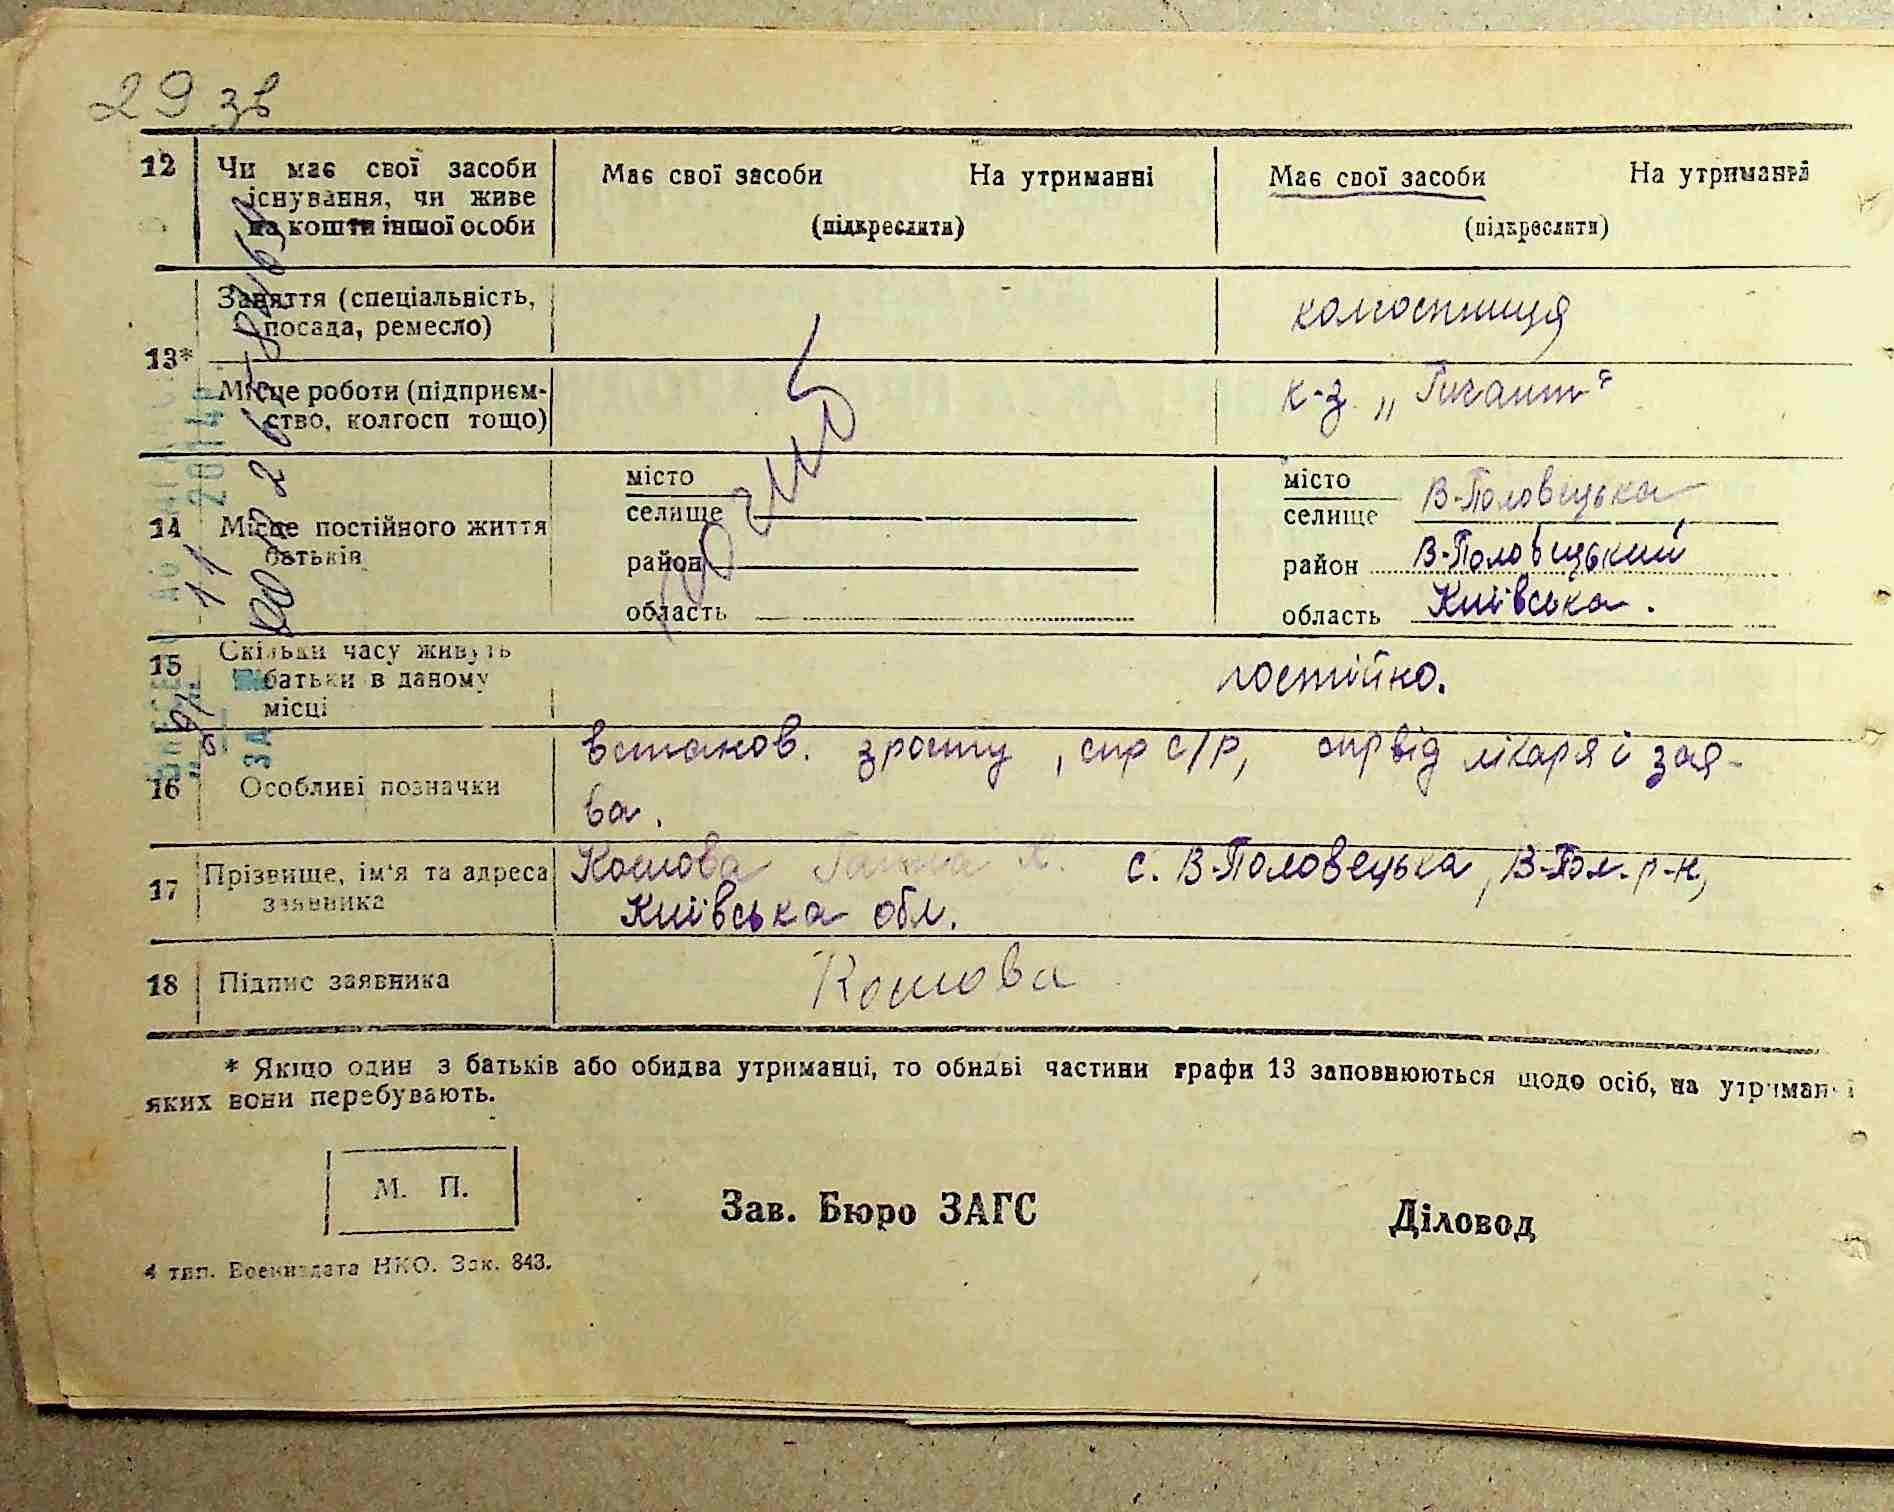 29 зв
12 Чи має свої засоби Має свої засоби На утриманні Має свої засоби На утриманні
існування, чи живе
на кошти іншої особи (підкреслити) (підкреслити)
Заняття (спеціальність, колгоспниця
посада, ремесло)
13*
Місце роботи (підприєм- к-з „Гигант"
ство, колгосп тощо)
місто місто
селище селище В-Половецька
14 Місце постійного життя
батьків район район В-Половецький
область область Київська.
15 Скільки часу живуть
батьки в даному постійно.
місці
встанов. зросту, спр с/р, спр від лікаря і зая-
16 Особливі позначки
ва.
17 Прізвище, ім'я та адреса с. В-Половецька, В-Пол. р-н,
заявника Київська обл.
18 Підпис заявника
* Якщо один з батьків або обидва утриманці, то обидві частини графи 13 заповнюються щодо осіб, на утриманні
яких вони перебувають.
М. П.
Зав. Бюро ЗАГС Діловод
4 тип. Воениздата НКО. Зак. 843.
2014